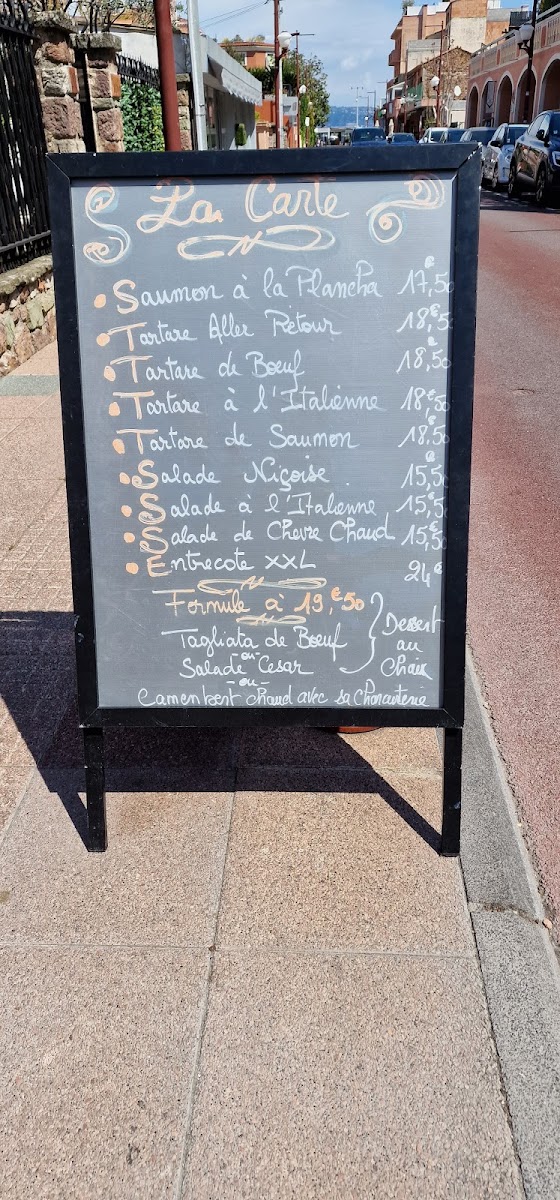 La Carte
• Saumon à la Plancha 17,€50
• Tartare Aller Retour 18,€50
• Tartare de Bœuf 18,€50
• Tartare à l'Italienne 18,€50
• Tartare de Saumon 18,€50
• Salade Niçoise. 15,€50
• Salade à l'Italienne 15,€50
• Salade de Chevre Chaud 15,€50
• Entrecote XXL 24€
Formule à 19,€50
Tagliata de Bœuf
-ou-
Salade Cesar
-ou-
Camembert chaud avec sa Charcuterie
Dessert
au
Choix